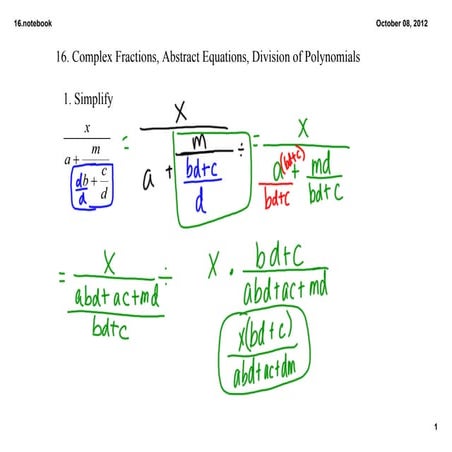 16.notebook October 08, 2012
16. Complex Fractions, Abstract Equations, Division of Polynomials
1. Simplify
x / (a + m / (d/d b + c/d)) = x / (a + m / ((bd+c) / d)) ÷ = x / (a(bd+c) / (bd+c) + md / (bd+c))
= x / ((abd+ac+md) / (bd+c)) ÷ x · (bd+c) / (abd+ac+md)
x(bd+c) / (abd+ac+dm)
1